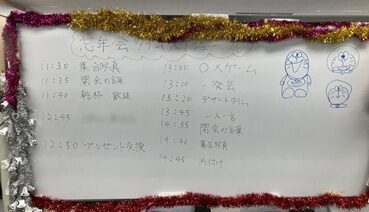 忘年会 タイムスケジュール
11:30 集合写真
11:35 開会の言葉
11:40 乾杯 歓談
12:45
12:50 プレゼント交換
13:00 〇×ゲーム
13:10 一発芸
13:20 デザートタイム
13:45 一人一言
14:35 閉会の言葉
14:40 集合写真
14:45 片付け